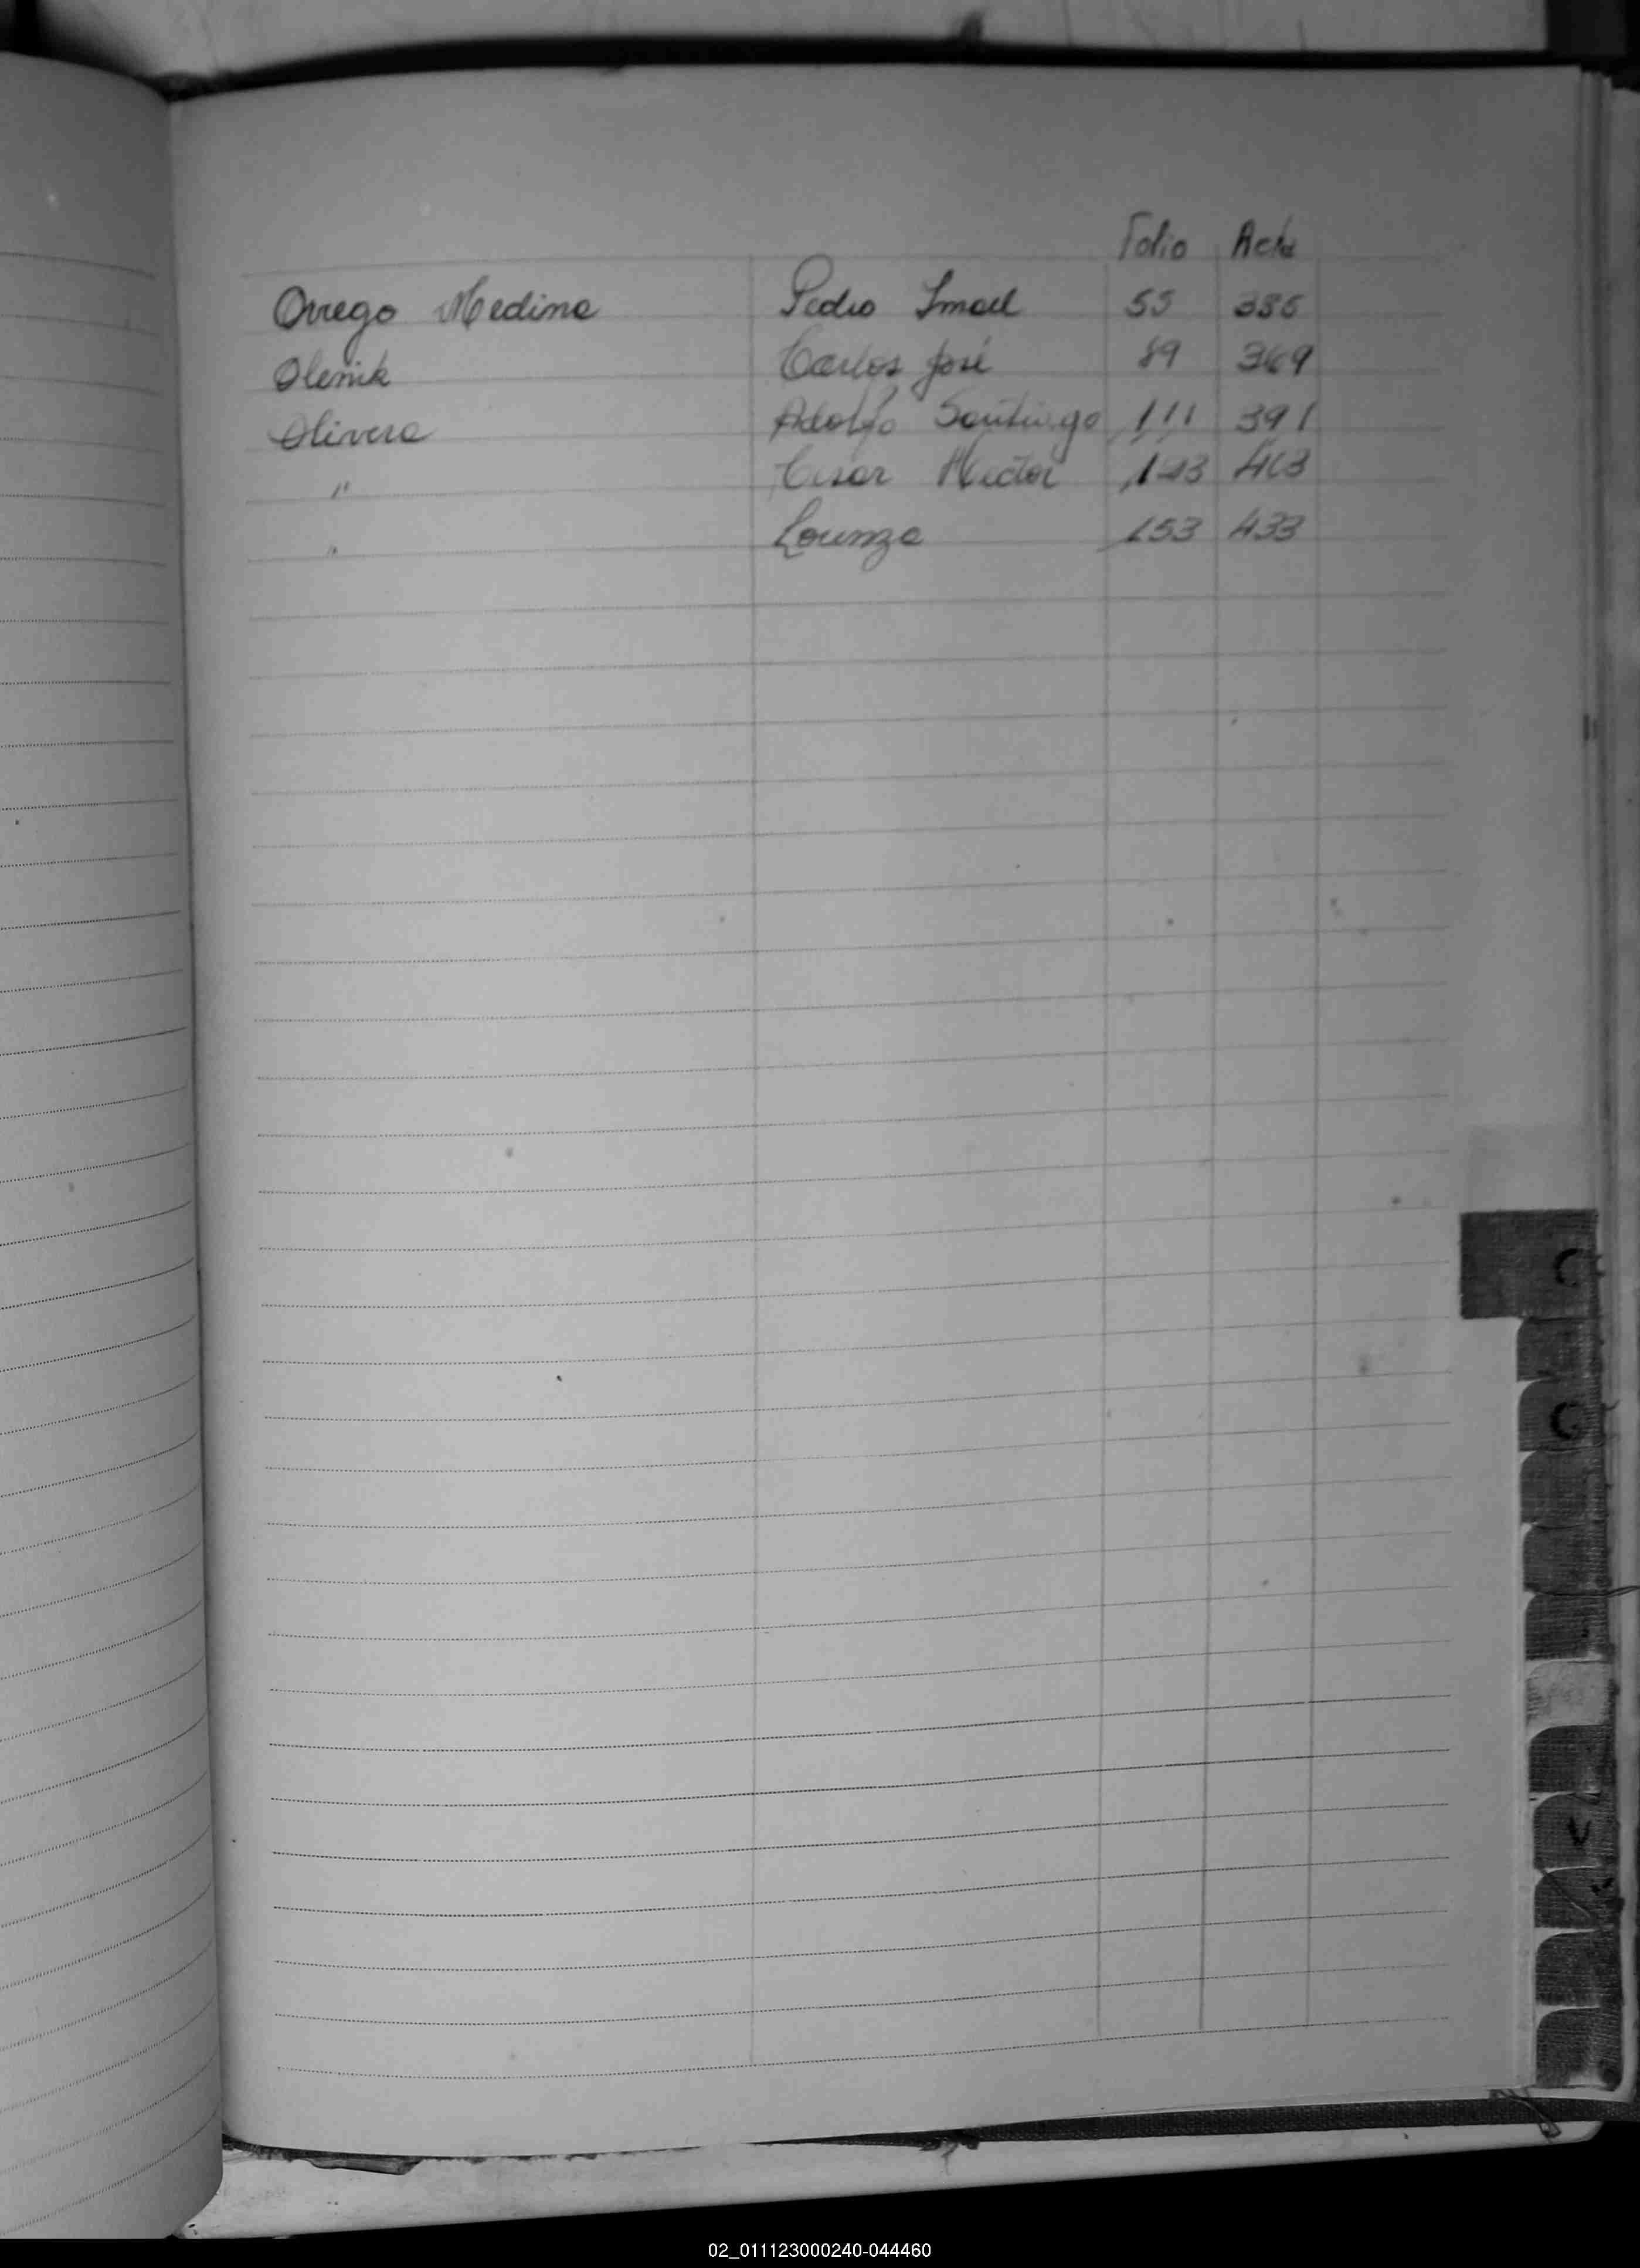 Folio Acta
Orrego Medina Pedro Ismael 55 335
Olenik Carlos José 89 369
Olivera Adolfo Santiago 111 391
" Cesar Hector 123 403
" Lorenza 153 433
02_011123000240-044460